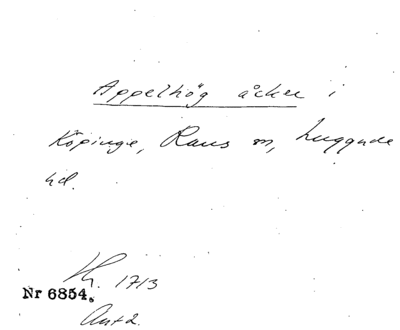 Appelhög åcker i
Köpinge, Raus sn, Luggude
hd.
Lk. 1713
Nr 6854.
Ant 2.